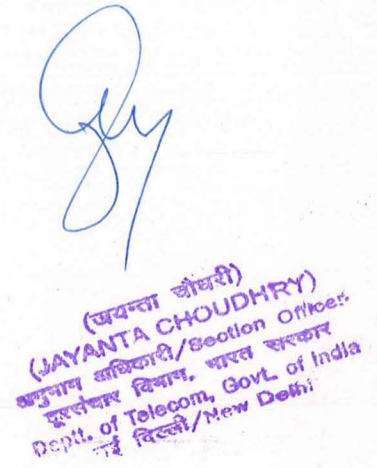 (जयन्ता चौधरी)
(JAYANTA CHOUDHRY)
अनुभाग अधिकारी/Section Officer
दूरसंचार विभाग, भारत सरकार
Deptt. of Telecom, Govt. of India
नई दिल्ली/New Delhi